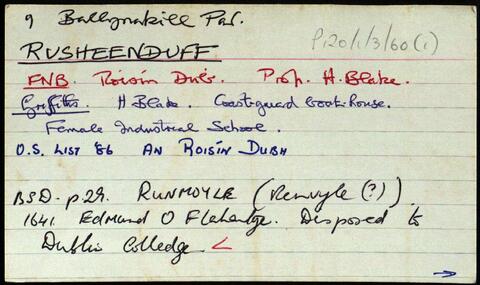 9 Ballynakill Par.
P120/1/3/60(i)
RUSHEENDUFF
FNB. Roisín Dubh. Prop. H. Blake.
Griffiths. H Blake. Coastguard boat-house.
Female Industrial School.
O.S. LIST '86 AN ROISÍN DUBH
BSD. p.29. RUNMOYLE (Renvyle (?))
1641 Edmund O Flahertge. Disposed to
Dublin Colledge. <
→